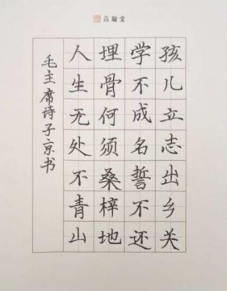 品翰堂
孩儿立志出乡关
学不成名誓不还
埋骨何须桑梓地
人生无处不青山
毛主席诗子京书